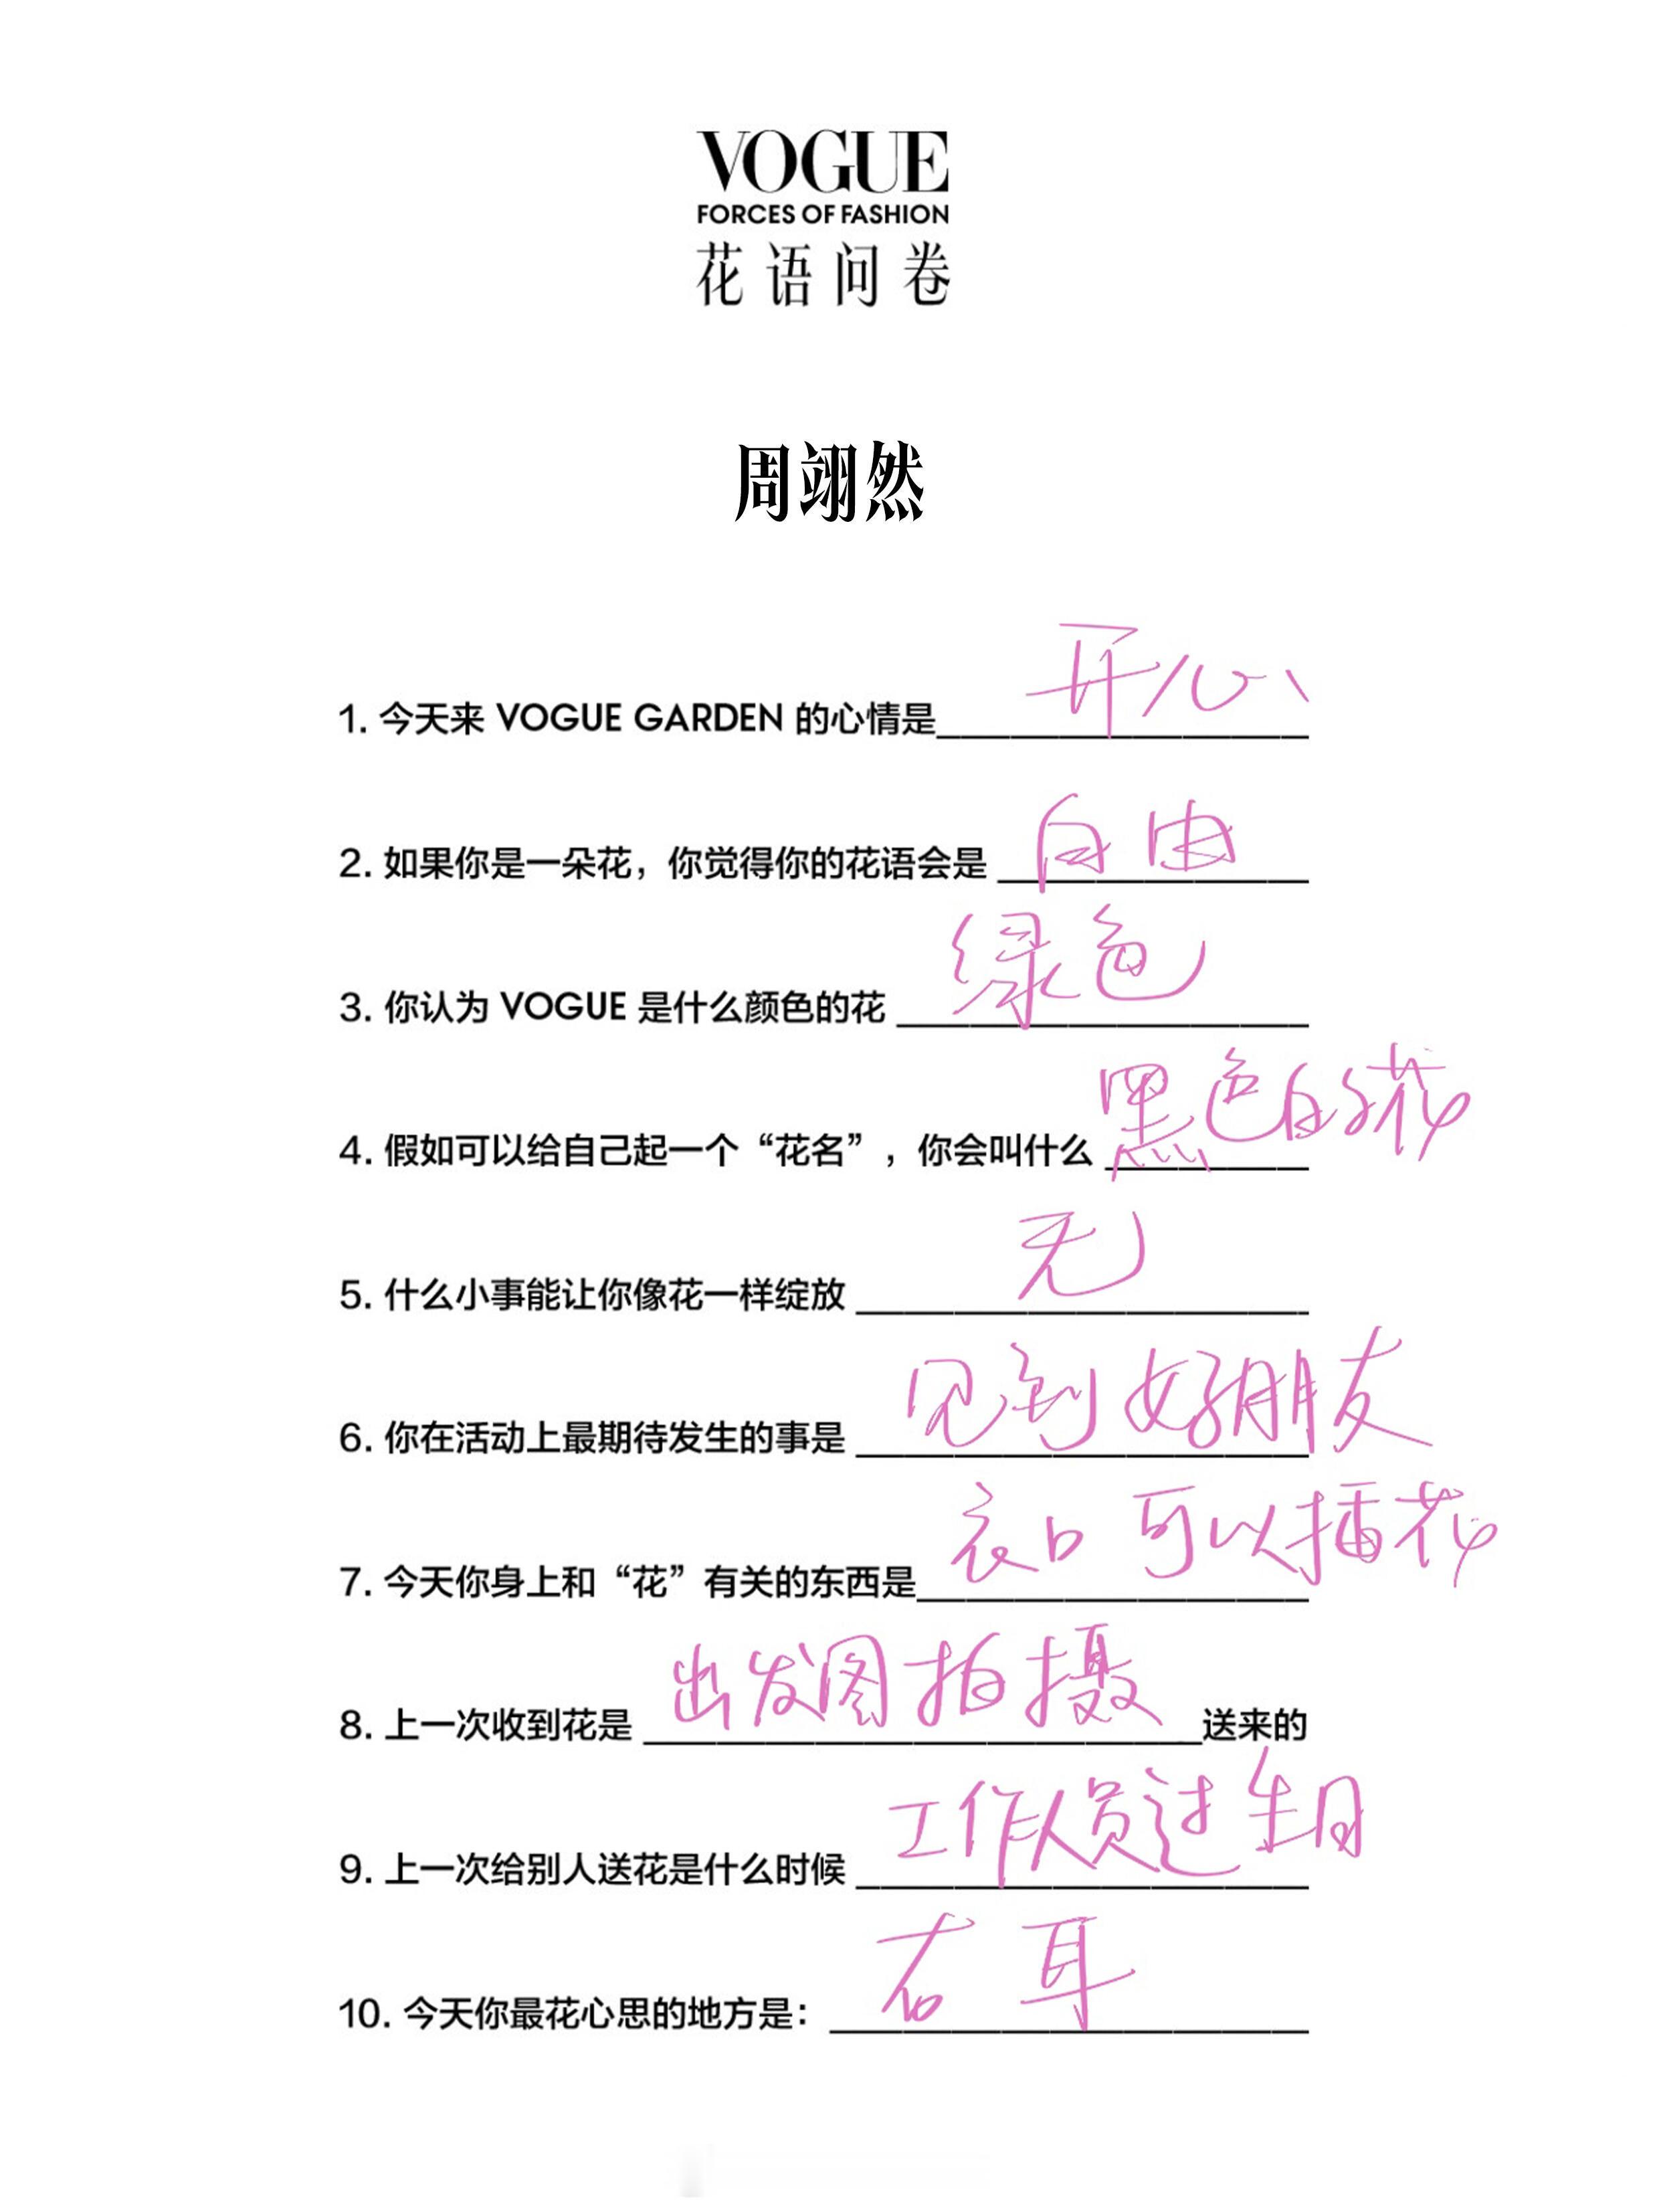 VOGUE
FORCES OF FASHION
花语问卷
周翊然
1. 今天来 VOGUE GARDEN 的心情是 开心
2. 如果你是一朵花，你觉得你的花语会是 自由
3. 你认为 VOGUE 是什么颜色的花 绿色
4. 假如可以给自己起一个“花名”，你会叫什么 黑色的花
5. 什么小事能让你像花一样绽放 无
6. 你在活动上最期待发生的事是 见到好朋友
7. 今天你身上和“花”有关的东西是 衣口可以插花
8. 上一次收到花是 出发图拍摄 送来的
9. 上一次给别人送花是什么时候 工作人员过生日
10. 今天你最花心思的地方是： 右耳